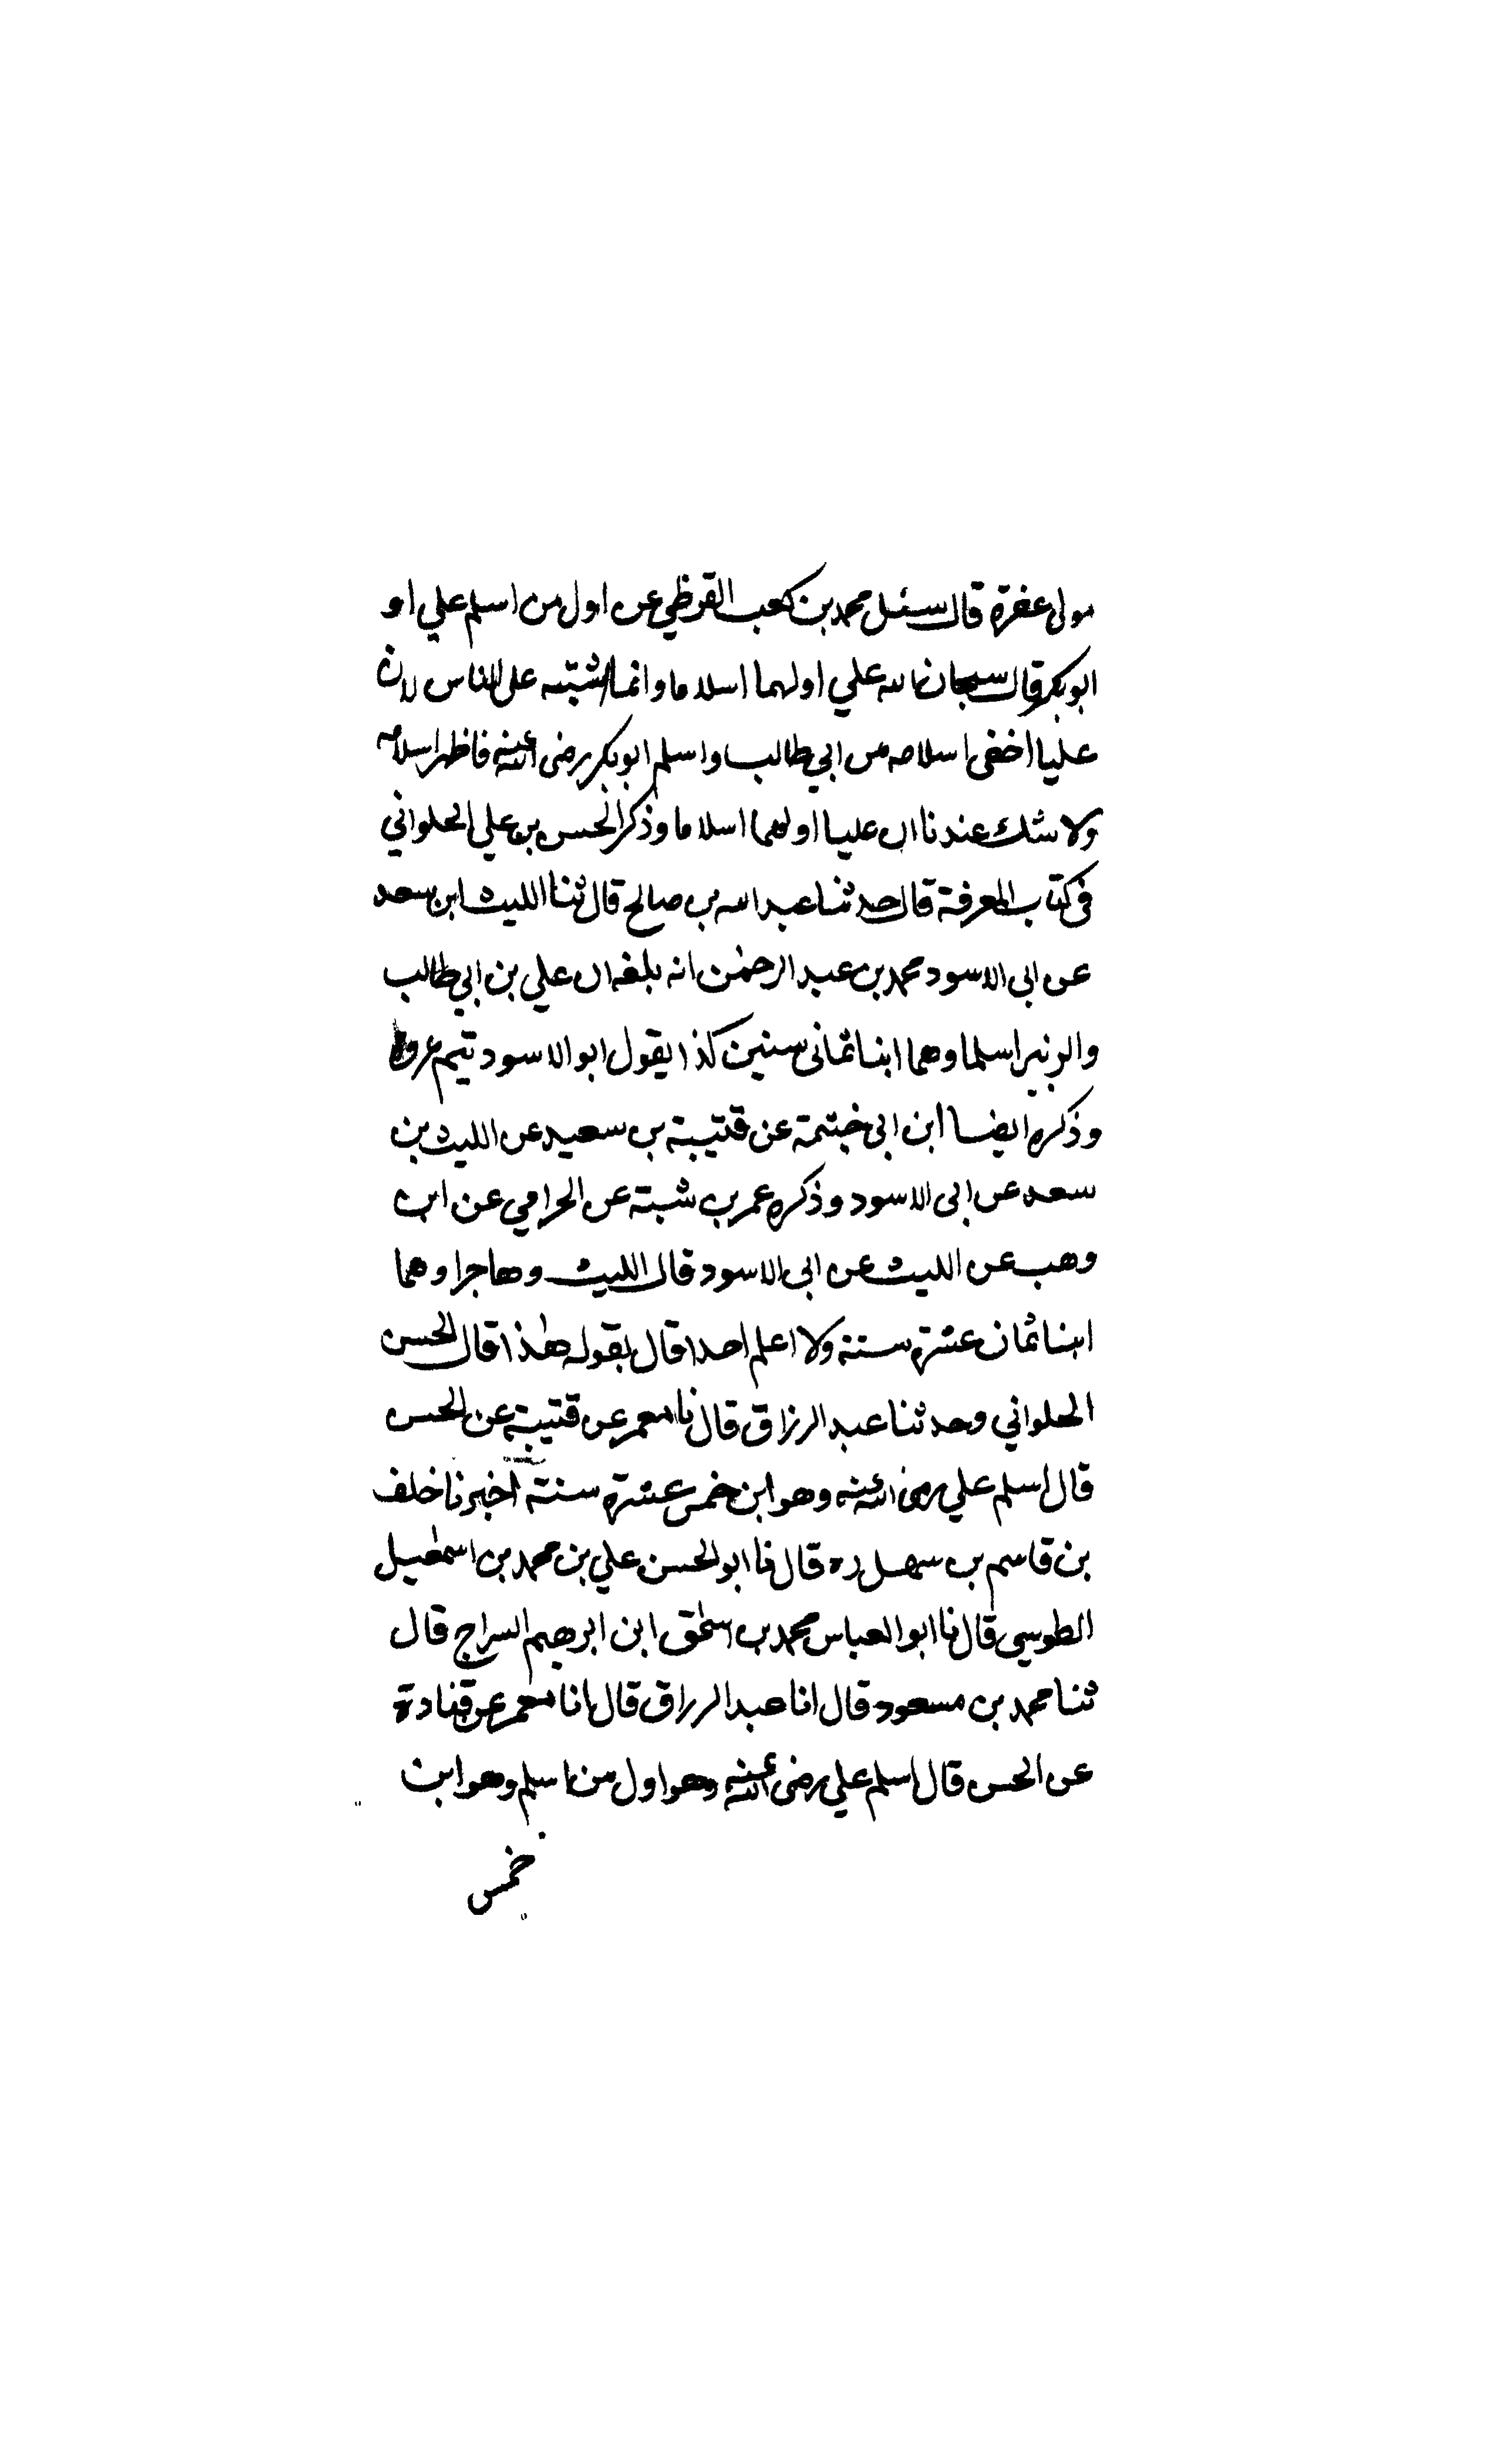 مولى عفرة قال سئل محمد بن كعب القرظي عن اول من اسلم علي او
ابو بكر قال سبحان الله علي اولهما اسلاما وانما اشتبه على الناس لان
عليا اخفى اسلامه من ابي طالب واسلم ابو بكر رضى الله عنه فاظهر اسلامه
ولا شك عندنا ان عليا اولهما اسلاما وذكر الحسن بن علي الحلواني
فى كتاب المعرفة قال حدثنا عبد الله بن صالح قال ثنا الليث ابن سعد
عن ابى الاسود محمد بن عبد الرحمن انه بلغه ان علي بن ابي طالب
والزبير اسلما وهما ابنا ثمانى سنين كذا يقول ابو الاسود تيم عروة
وذكره ايضا ابن ابى خيثمة عن قتيبة بن سعيد عن الليث بن
سعد عن ابى الاسود وذكره عمر بن شبة عن الحزامي عن ابن
وهب عن الليث عن ابى الاسود قال الليث وهاجرا وهما
ابنا ثمان عشرة سنة ولا اعلم احدا قال بقوله هذا قال الحسن
الحلواني وحدثنا عبد الرزاق قال نا معمر عن قتيبة عن الحسن
قال اسلم علي رضى الله عنه وهو ابن خمس عشرة سنة اخبرنا خلف
بن قاسم بن سهل ره قال نا ابو الحسن علي بن محمد بن اسمعيل
الطوسي قال نا ابو العباس محمد بن اسحق ابن ابرهيم السراج قال
ثنا محمد بن مسعود قال انا عبد الرزاق قال انا معمر عن قتادة
عن الحسن قال اسلم علي رضى الله عنه وهو اول من اسلم وهو ابن
خمس